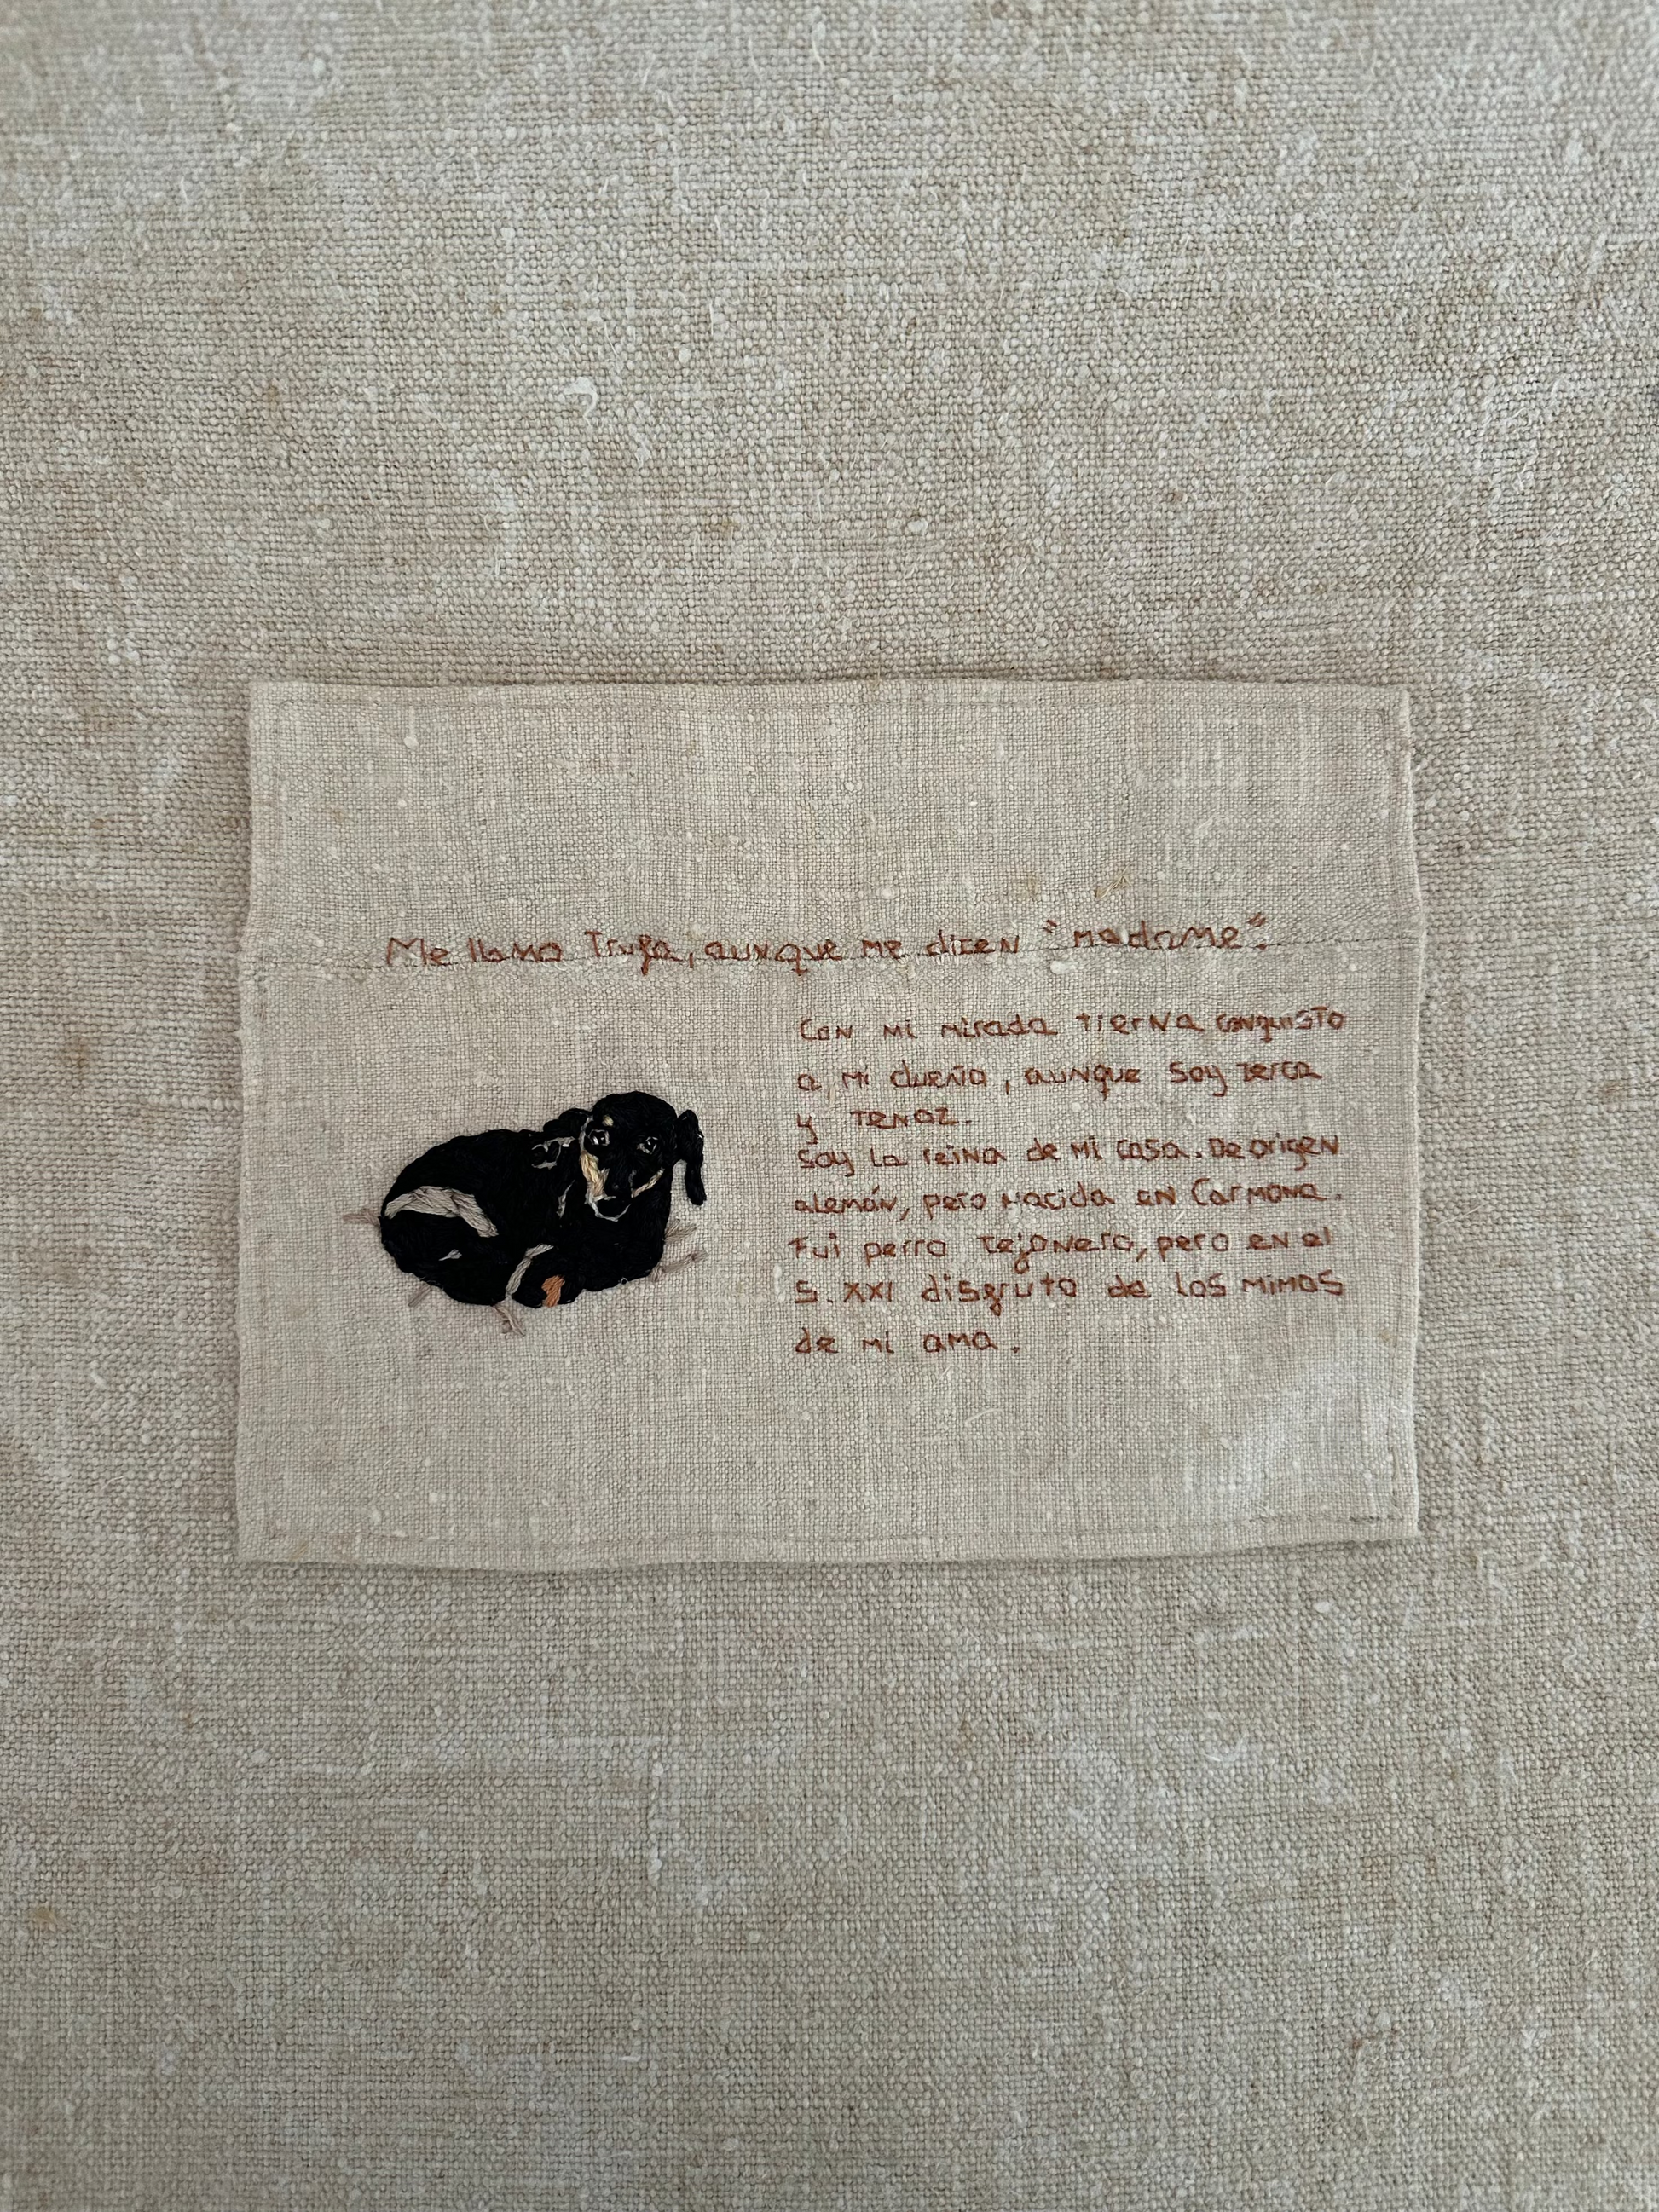 Me llamo Trufa, aunque me dicen "madame".
Con mi mirada tierna conquisto
a mi dueña, aunque soy terca
y tenaz.
Soy la reina de mi casa. De origen
alemán, pero nacida en Carmona.
Fui perro tejonero, pero en el
S. XXI disfruto de los mimos
de mi ama.